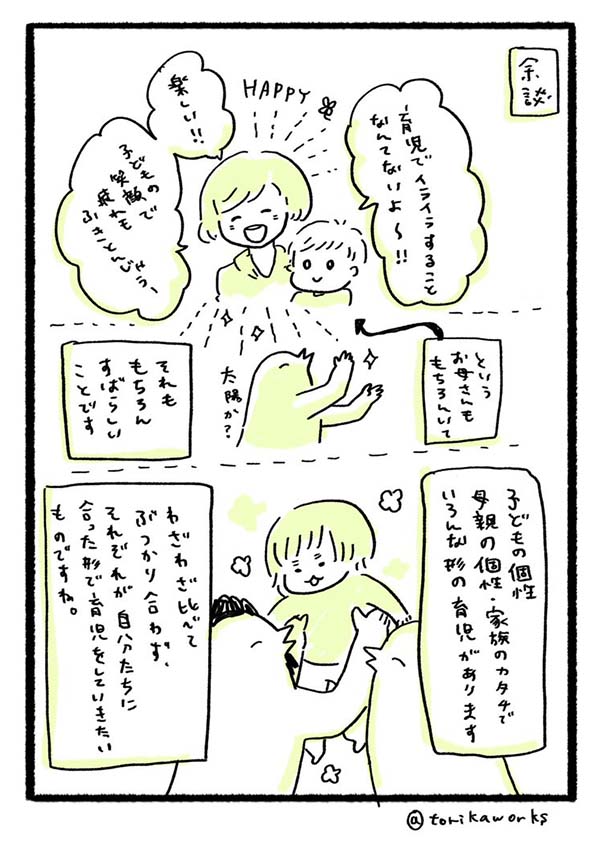 余談
育児でイライラすること
なんてないよ〜!!
HAPPY
楽しい!!
子どもの
笑顔で
疲れも
ふきとんじゃう、
という
お母さんも
もちろんいて
太陽か?
それも
もちろん
すばらしい
ことです
子どもの個性
母親の個性・家族のカタチで
いろんな形の育児があります
わざわざ比べて
ぶつかり合わず、
それぞれが自分たちに
合った形で育児をしていきたい
ものですね。
@torikaworks